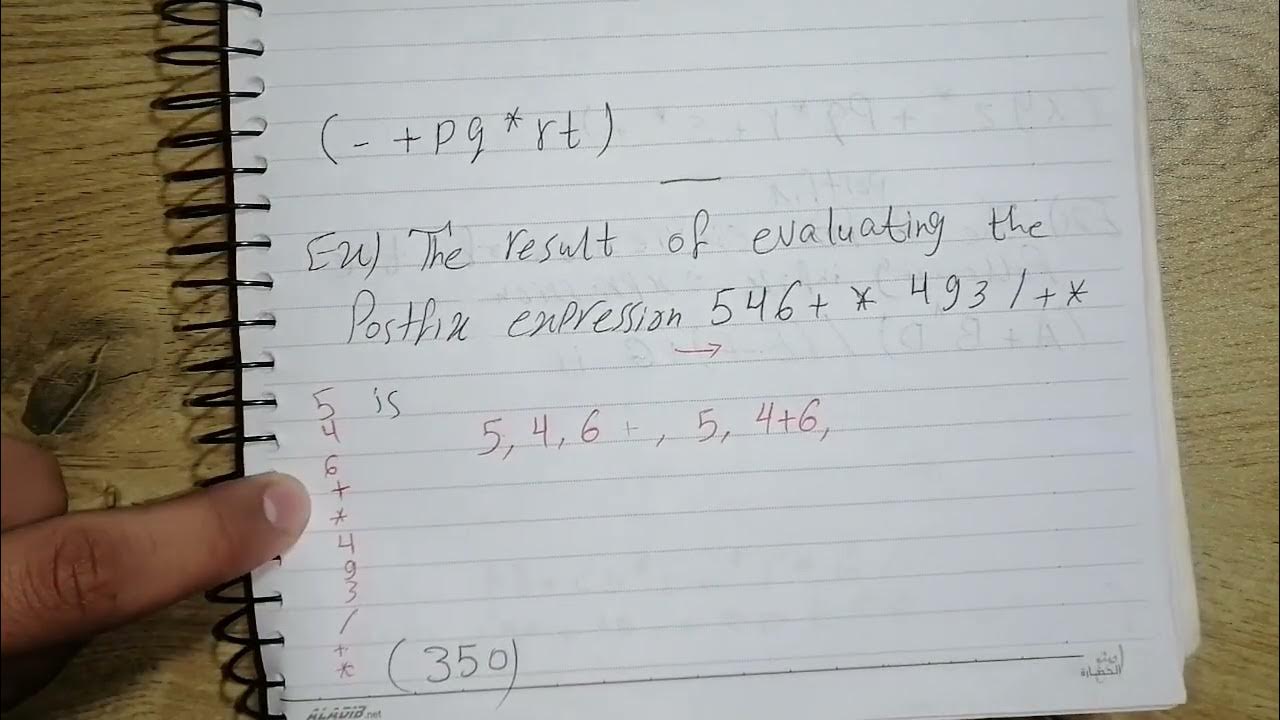 (- + p q * r t)
Ex) The result of evaluating the
Postfix expression 5 4 6 + * 4 9 3 / + *
is
5, 4, 6 + , 5, 4+6,
5
4
6
+
*
4
9
3
/
+
*
(350)
ALADIB.net